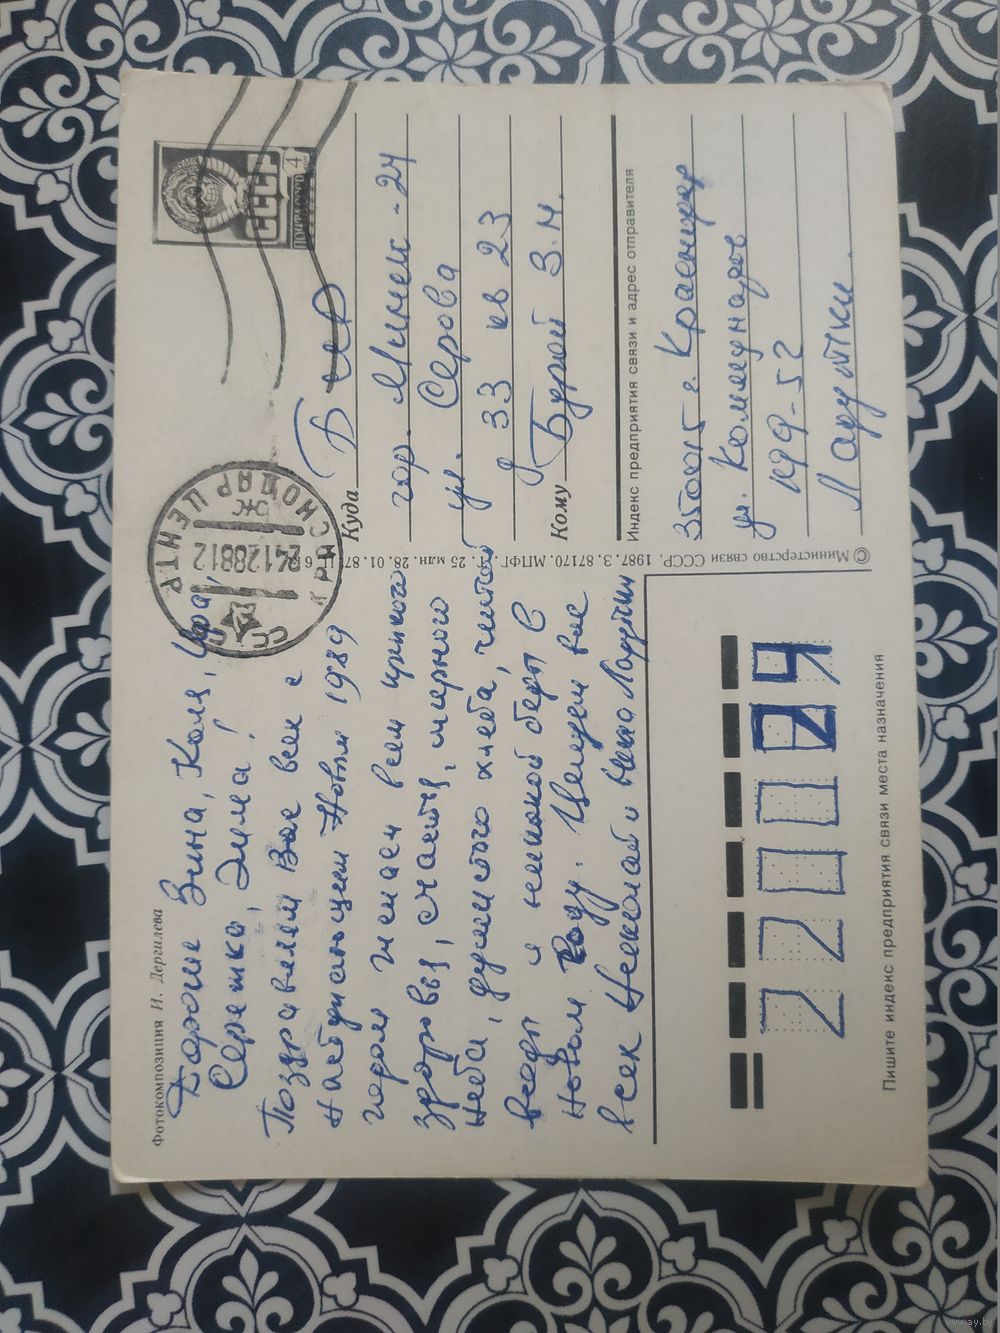 Фотокомпозиция И. Дергилева
Дорогие Зина, Коля, Ира,
Сережка, Дима!
Поздравляем Вас всех с
наступающим Новым 1989
годом желаем всем крепкого
здоровья, счастья, мирного
неба, душистого хлеба, чистой
воды и никакой беды в
Новом году. Целуем вас
всех Николай и Нина Ларутки
ПОЧТА СССР
4
СССР
КРАСНОДАР ЦЕНТР
24128812
Куда
гор. Минск-24
ул. Серова
д 33 кв 23
Кому Бурой З.Н.
Индекс предприятия связи и адрес отправителя
350015 г. Краснодар
ул. Коммунаров
199-52
Ларутки.
© Министерство связи СССР, 1987. З. 87170. МПФГ. 25 млн. 28. 01. 87.
220024
Пишите индекс предприятия связи места назначения
www.ay.by